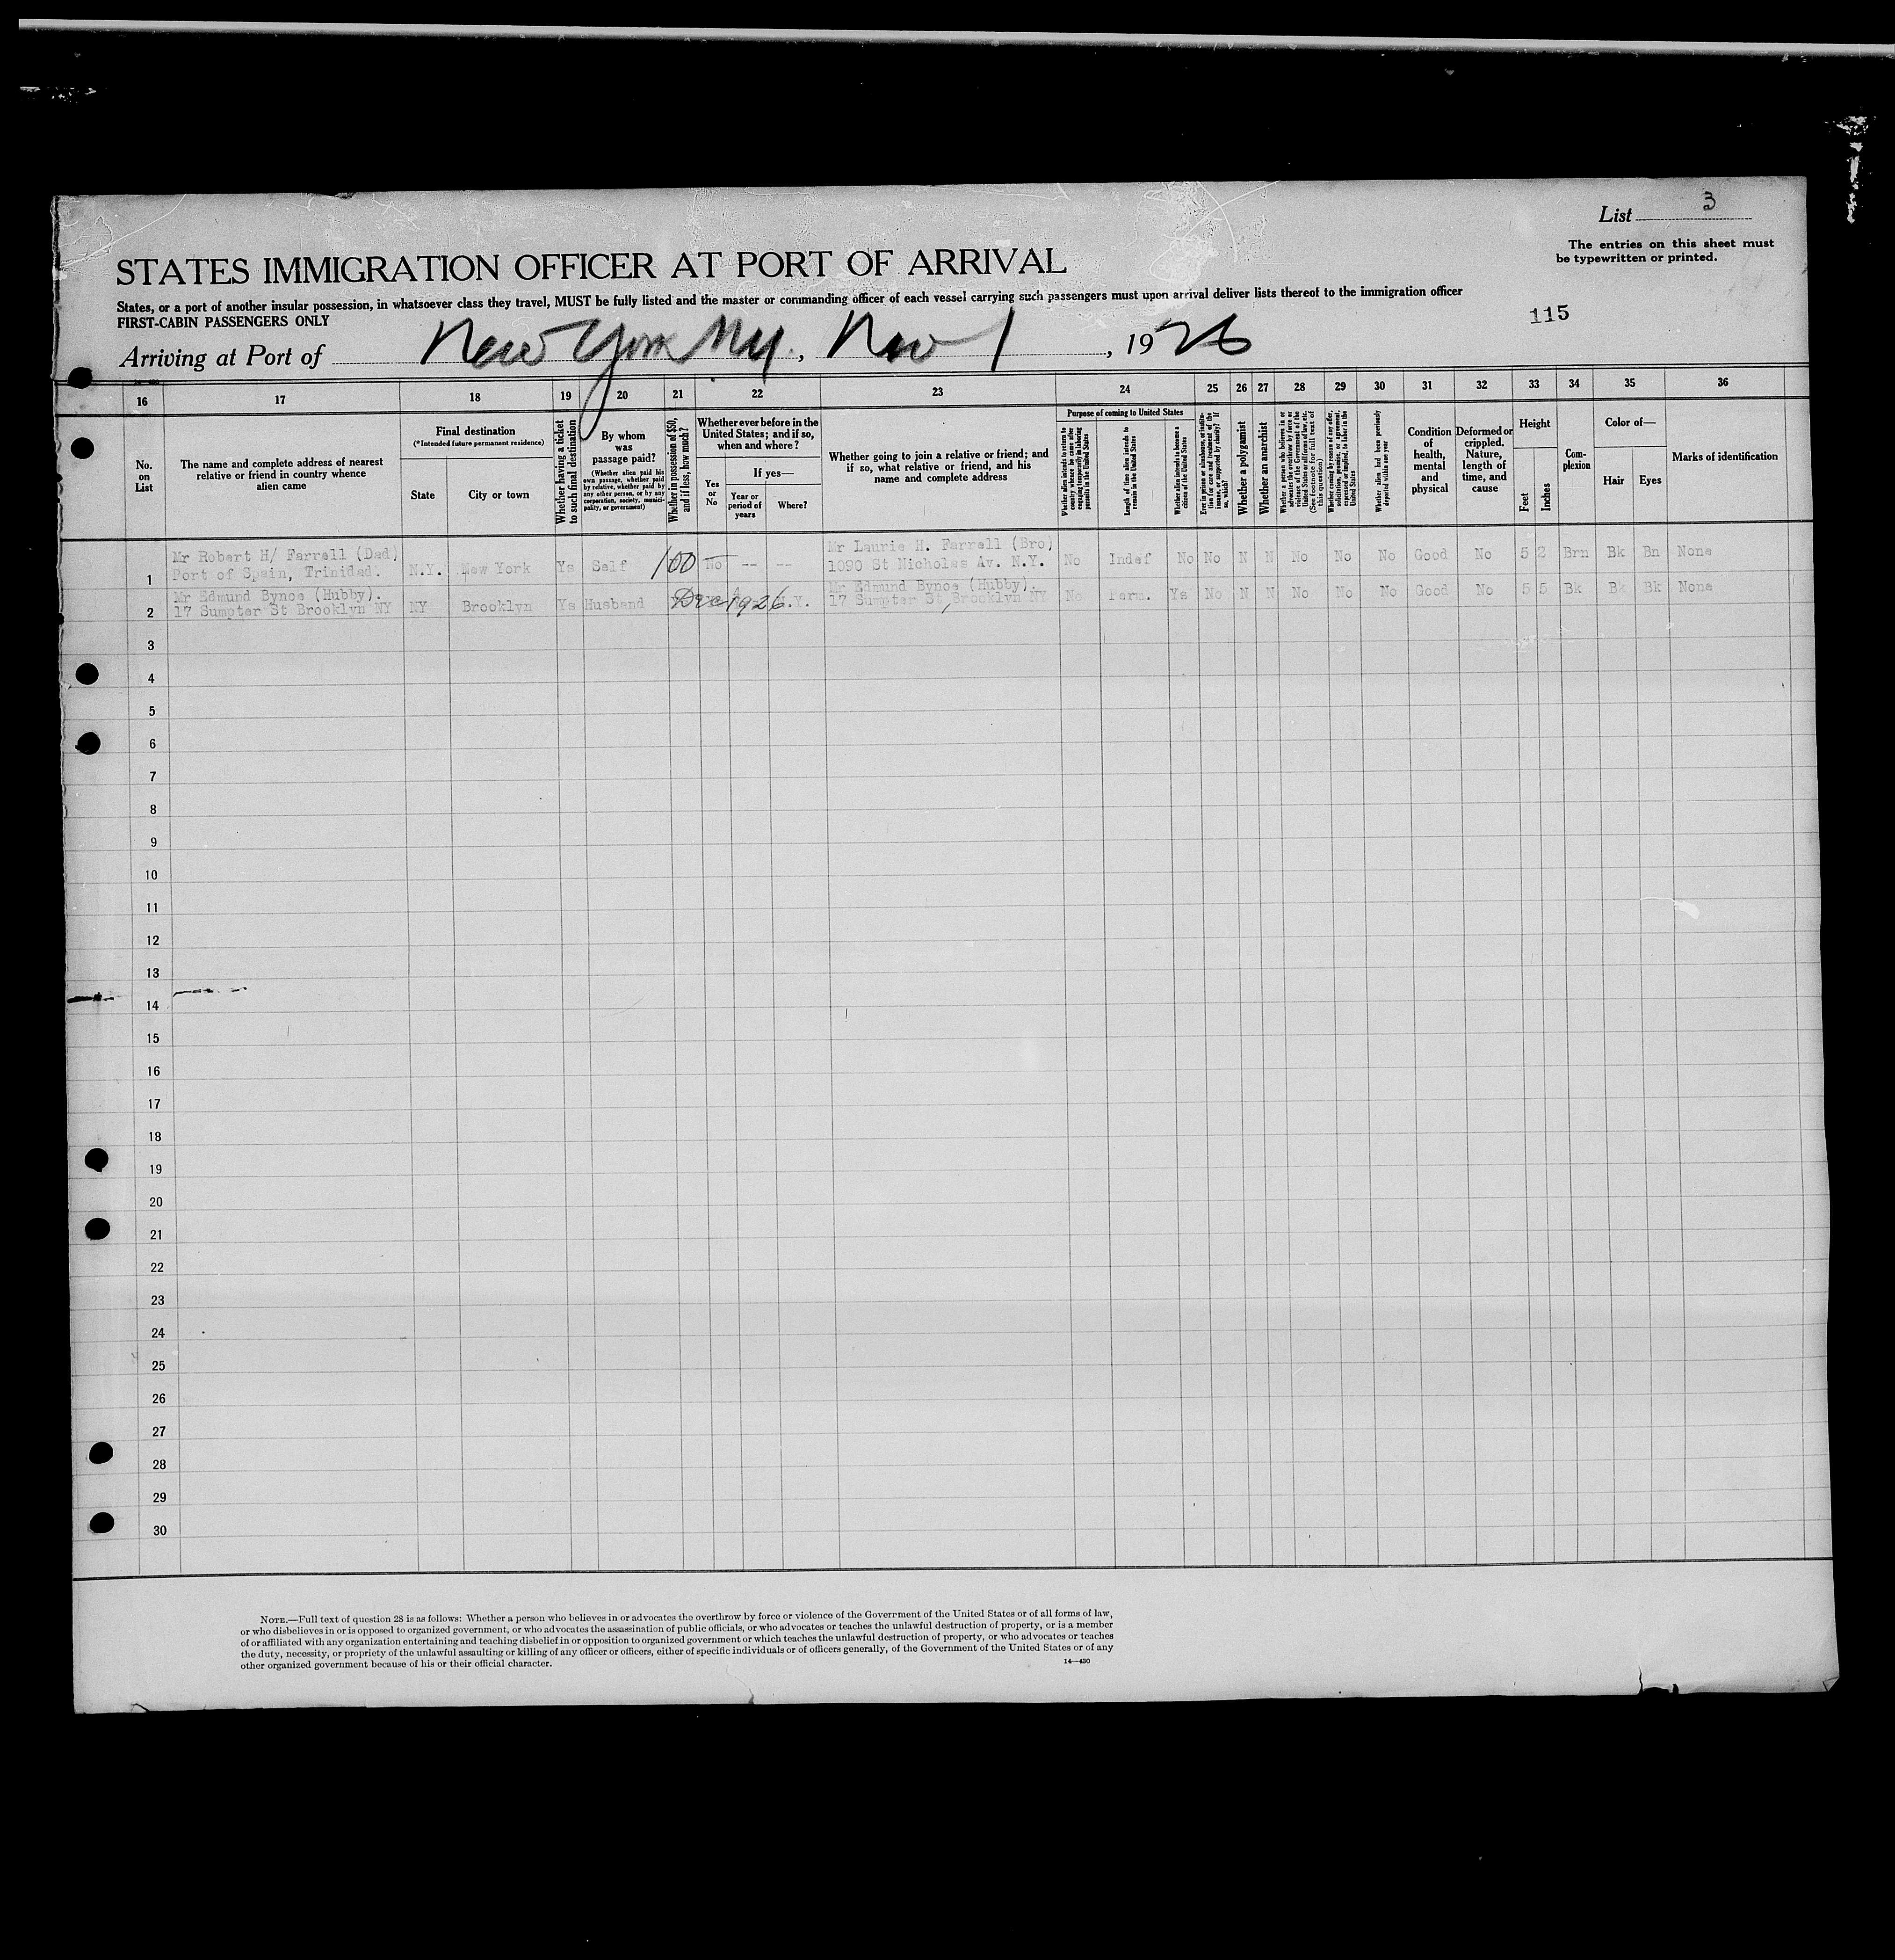 List 3
The entries on this sheet must
be typewritten or printed.
STATES IMMIGRATION OFFICER AT PORT OF ARRIVAL
States, or a port of another insular possession, in whatsoever class they travel, MUST be fully listed and the master or commanding officer of each vessel carrying such passengers must upon arrival deliver lists thereof to the immigration officer
FIRST-CABIN PASSENGERS ONLY
115
Arriving at Port of New York NY., Nov 1, 1926
16 17 18 19 20 21 22 23 24 25 26 27 28 29 30 31 32 33 34 35 36
No.
on
List
The name and complete address of nearest
relative or friend in country whence
alien came
Final destination
(*Intended future permanent residence)
State
City or town
Whether having a ticket
to such final destination
By whom
was
passage paid?
(Whether alien paid his
own passage, whether paid
by relative, whether paid by
any other person, or by any
corporation, society, munici-
pality, or government)
Whether in possession of $50,
and if less, how much?
Whether ever before in the
United States; and if so,
when and where?
Yes
or
No
If yes—
Year or
period of
years
Where?
Whether going to join a relative or friend; and
if so, what relative or friend, and his
name and complete address
Purpose of coming to United States
Whether alien intends to return to
country whence he came after
engaging temporarily in laboring
pursuits in the United States
Length of time alien intends to
remain in the United States
Whether alien intends to become a
citizen of the United States
Ever in prison or almshouse, or institu-
tion for care and treatment of the
insane, or supported by charity? If
so, which?
Whether a polygamist
Whether an anarchist
Whether a person who believes in or
advocates the overthrow by force or
violence of the Government of the
United States or all forms of law, etc.
(See footnote for full text of
this question)
Whether coming by reason of any offer,
solicitation, promise, or agreement,
expressed or implied, to labor in the
United States
Whether alien had been previously
deported within one year
Condition
of
health,
mental
and
physical
Deformed or
crippled.
Nature,
length of
time, and
cause
Height
Feet
Inches
Com-
plexion
Color of—
Hair
Eyes
Marks of identification
Mr Robert H/ Farrell (Dad) Mr Laurie H. Farrell (Bro)
1 Port of Spain, Trinidad. N.Y. New York Ys Self 100 No -- -- 1090 St Nicholas Av. N.Y. No Indef No No N N No No No Good No 5 2 Brn Bk Bn None
Mr Edmund Bynoe (Hubby). Mr Edmund Bynoe (Hubby).
2 17 Sumpter St Brooklyn NY NY Brooklyn Ys Husband Dec 1926 N.Y. 17 Sumpter St, Brooklyn NY No Perm. Ys No N N No No No Good No 5 5 Bk Bk Bk None
3
4
5
6
7
8
9
10
11
12
13
14
15
16
17
18
19
20
21
22
23
24
25
26
27
28
29
30
NOTE.—Full text of question 28 is as follows: Whether a person who believes in or advocates the overthrow by force or violence of the Government of the United States or of all forms of law,
or who disbelieves in or is opposed to organized government, or who advocates the assassination of public officials, or who advocates or teaches the unlawful destruction of property, or is a member
of or affiliated with any organization entertaining and teaching disbelief in or opposition to organized government or which teaches the unlawful destruction of property, or who advocates or teaches
the duty, necessity, or propriety of the unlawful assaulting or killing of any officer or officers, either of specific individuals or of officers generally, of the Government of the United States or of any
other organized government because of his or their official character.
14—430